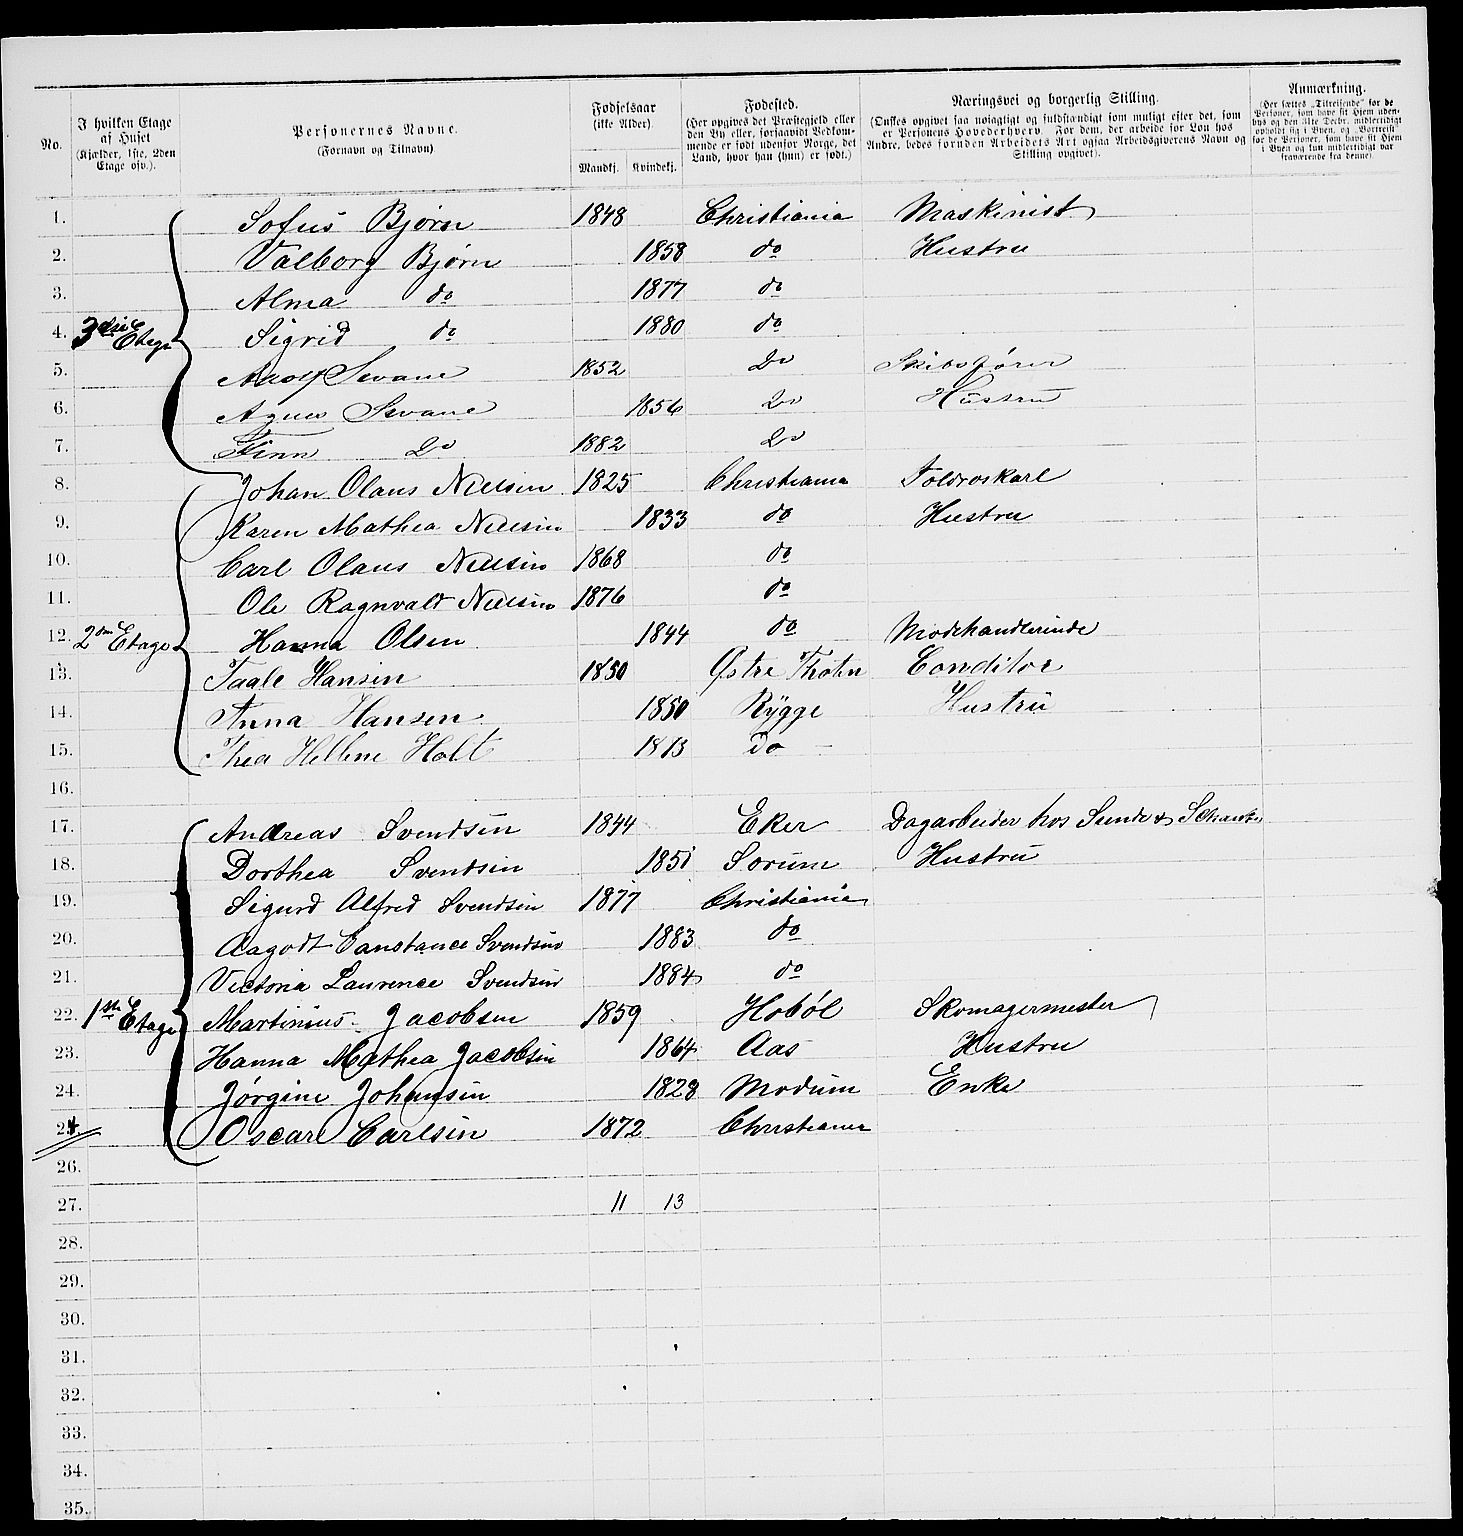 No.
I hvilken Etage af Huset (Kjælder, 1ste, 2den Etage osv.).
Personernes Navne. (Fornavn og Tilnavn).
Fødselsaar (ikke Alder) Mandkj. Kvindekj.
Fødested. (Her opgives det Præstegjeld eller den By eller, forsaavidt Vedkommende er født udenfor Norge, det Land, hvor han (hun) er født.)
Næringsvei og borgerlig Stilling. (Ønskes opgivet saa nøiagtigt og fuldstændigt som muligt efter det, som er Personens Hovederhverv. For dem, der arbeide for Løn hos Andre, bedes foruden Arbeidets Art ogsaa Arbeidsgiverens Navn og Stilling opgivet).
Anmærkning. (Her sættes „Tilreisende" for de Personer, som have sit Hjem udenbys og den 31te Decbr. midlertidigt opholdt sig i Byen, og „Bortreist" for de Personer, som have sit Hjem i Byen og kun midlertidigt var fraværende fra denne).
1. Sofus Bjørn 1848 Christiania Maskinist
2. Valborg Bjørn 1858 do Hustru
3. Alma do 1877 do
4. 3die Etage Sigrid do 1880 do
5. Adolf Svane 1852 Do Skibsfører
6. Agnes Svane 1856 Do Hustru
7. Finn Do 1882 Do
8. Johan Olaus Nielsen 1825 Christiania Toldroskarl
9. Karen Mathea Nielsen 1833 do Hustru
10. Carl Olaus Nielsen 1868 do
11. Ole Ragnvald Nielsen 1876 do
12. 2den Etage Hanna Olsen 1844 do Modehandlerinde
13. Taale Hansen 1850 Østre Thoten Conditor
14. Anna Hansen 1850 Rygge Hustru
15. Thea Hellene Holt 1873 Do
16.
17. Andreas Svendsen 1844 Eker Dagarbeider hos Sunde &
18. Dorthea Svendsen 1851 Sørum Hustru
19. Sigurd Alfred Svendsen 1877 Christiania
20. Aagodt Constance Svendsen 1883 do
21. Victoria Laurence Svendsen 1884 do
22. 1ste Etage Martinius Jacobsen 1859 Hobøl Skomagermester
23. Hanna Mathea Jacobsen 1864 Aas Hustru
24. Jørgine Johansen 1828 Modum Enke
24. Oscar Carlsen 1872 Christiania
26.
27. 11 13
28.
29.
30.
31.
32.
33.
34.
35.